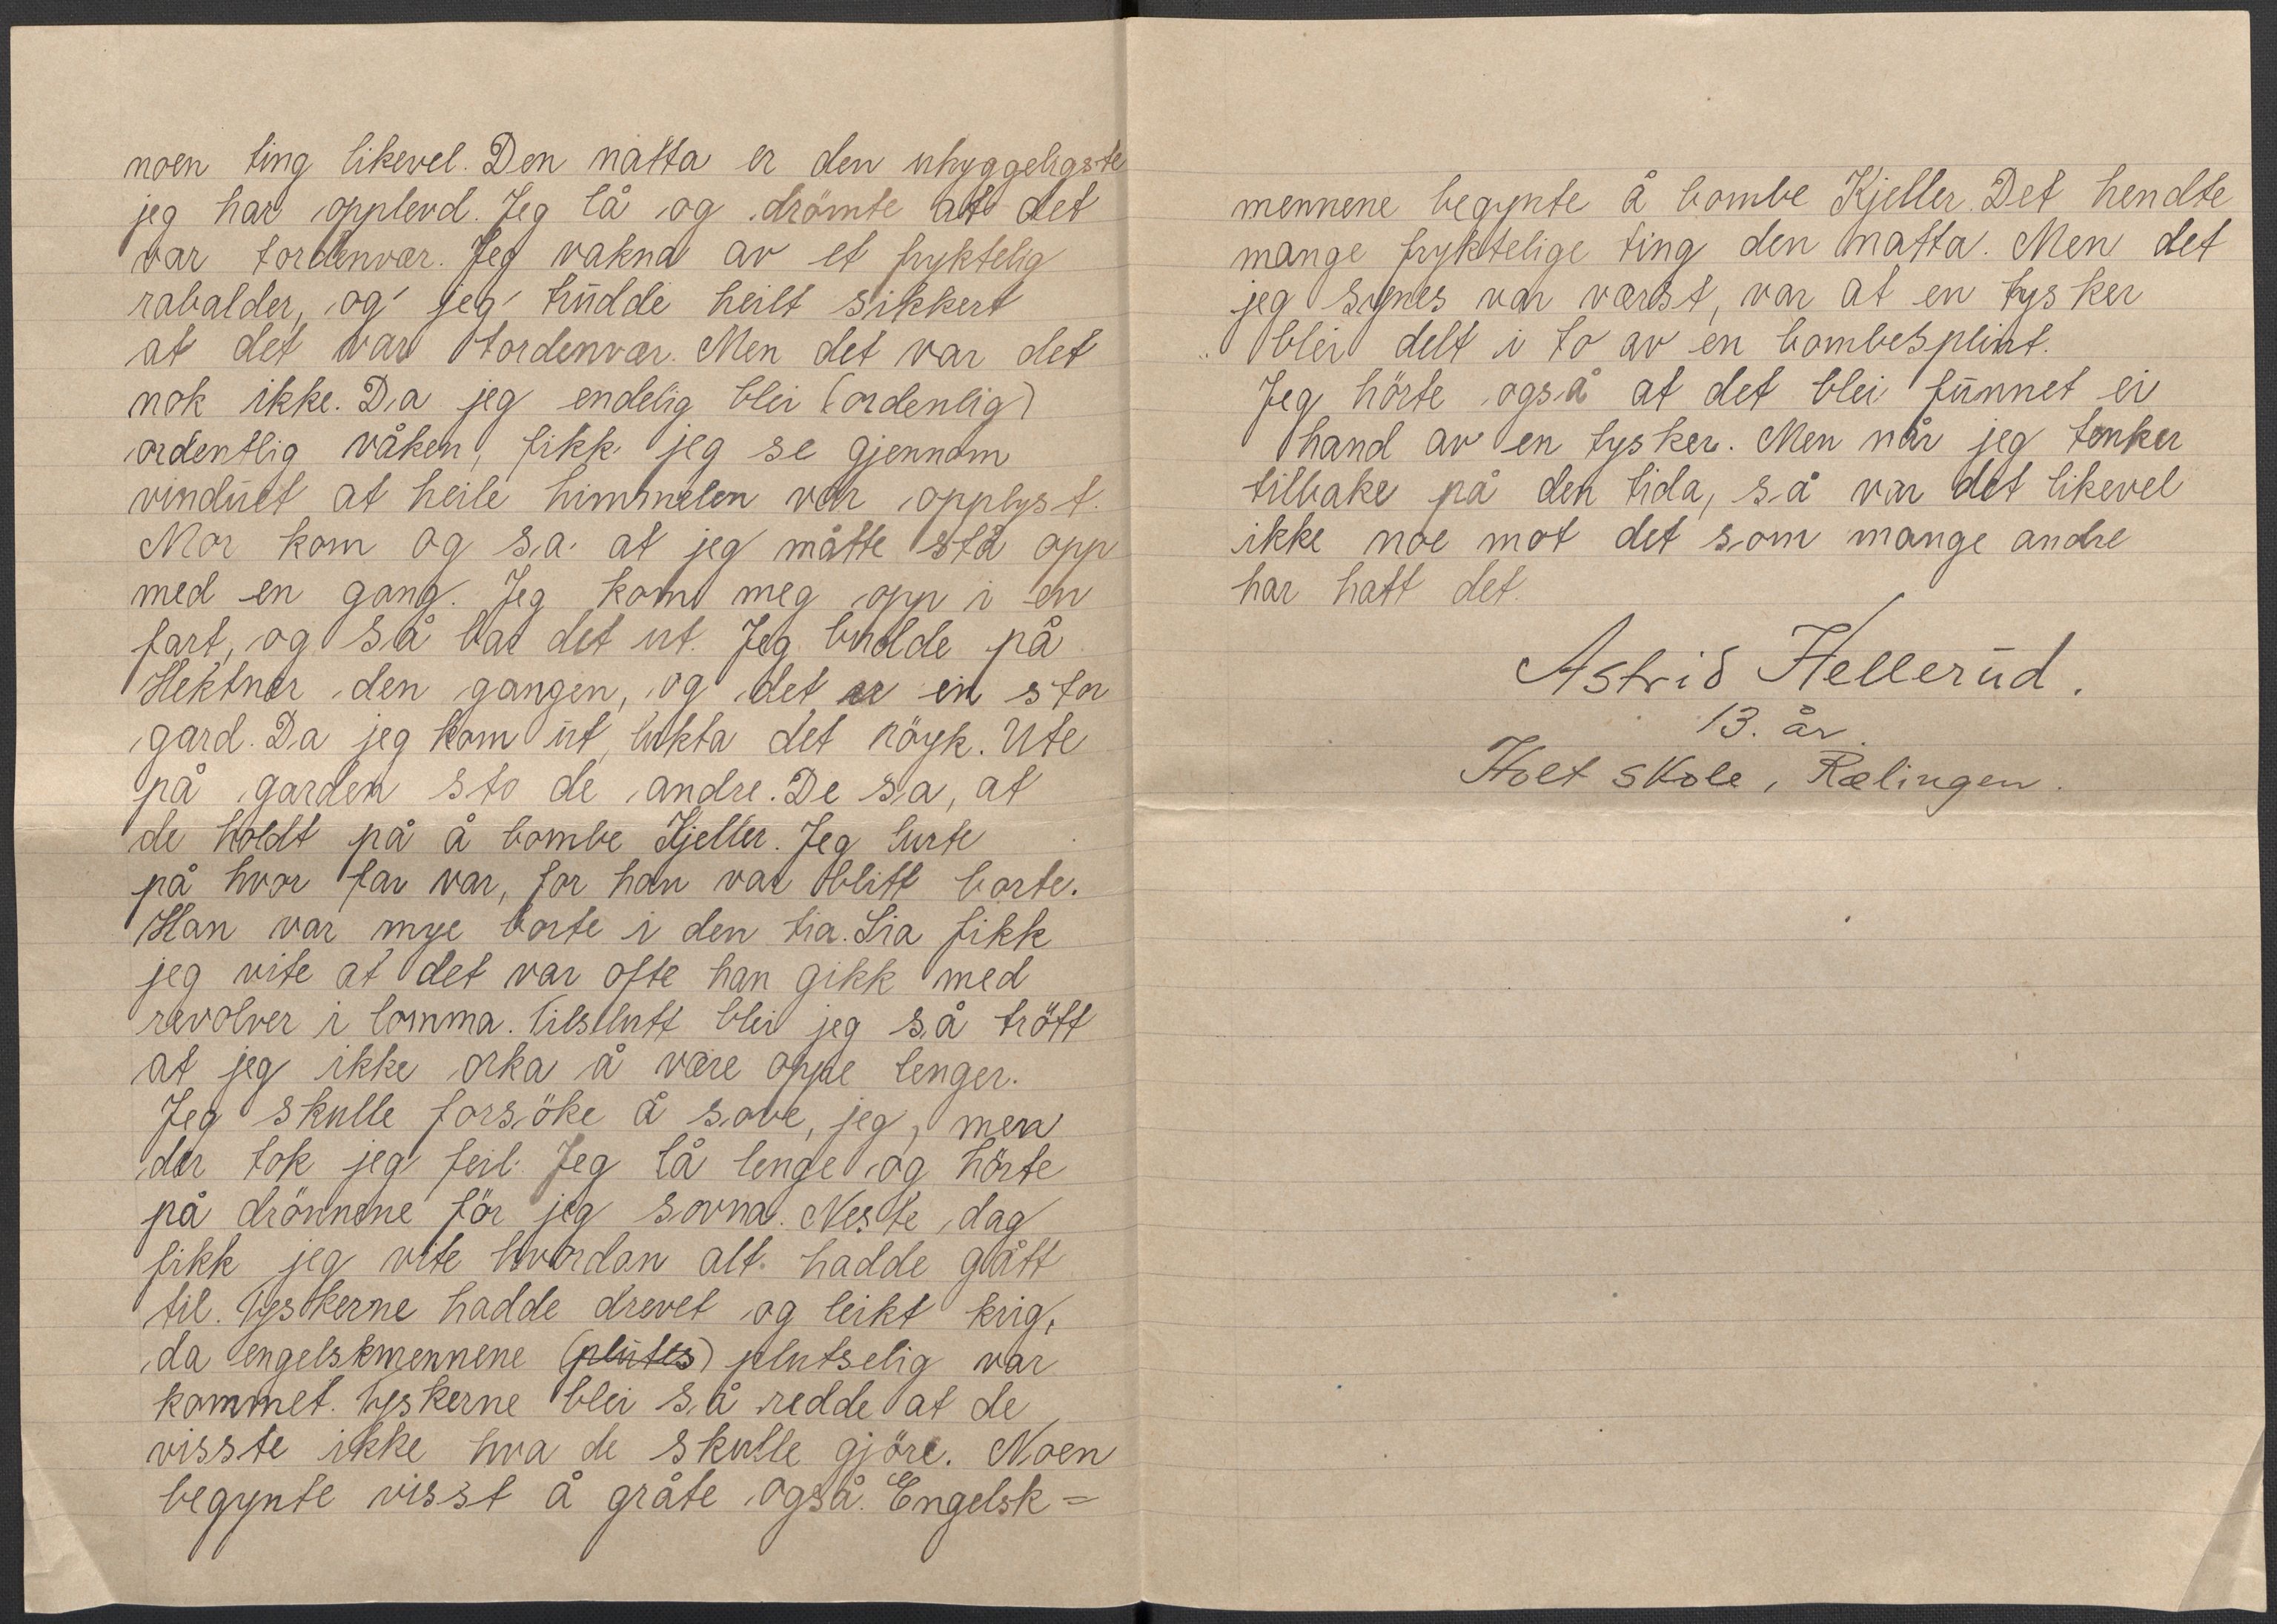 noen ting likevel. Den natta er den uhyggeligste
jeg har opplevd. Jeg lå og drömte at det
var tordenvær. Jeg vakna av et fryktelig
rabalder, og jeg trudde heilt sikkert
at det var tordenvær. Men det var det
nok ikke. Da jeg endelig blei (ordenlig)
ordentlig våken, fikk jeg se gjennom
vinduet at heile himmelen var opplyst.
Mor kom og sa at jeg måtte stå opp
med en gang. Jeg kom meg opp i en
fart, og så bar det ut. Jeg budde på
Hektner den gangen, og det er en stor
gard. Da jeg kom ut, lukta det röyk. Ute
på garden sto de andre. De sa, at
de holdt på å bombe Kjeller. Jeg lurte
på hvor far var, for han var blitt borte.
Han var mye borte i den tia. Sia fikk
jeg vite at det var ofte han gikk med
revolver i lomma. Tilslutt blei jeg så trött
at jeg ikke orka å være oppe lenger.
Jeg skulle forsöke å sove, jeg, men
der tok jeg feil. Jeg lå lenge og hörte
på drönnene för jeg sovna. Neste dag
fikk jeg vite hvordan alt hadde gått
til. Tyskerne hadde drevet og leikt krig,
da engelskmennene (plutes) plutselig var
kommet. Tyskerne blei så redde at de
visste ikke hva de skulle gjöre. Noen
begynte visst å gråte også. Engelsk=
mennene begynte å bombe Kjeller. Det hendte
mange fryktelige ting den natta. Men det
jeg synes var værst, var at en tysker
blei delt i to av en bombesplint.
Jeg hörte også at det blei funnet ei
hand av en tysker. Men når jeg tenker
tilbake på den tida, så var det likevel
ikke noe mot det som mange andre
har hatt det.
Astrid Hellerud.
13. år.
Holt skole, Rælingen.